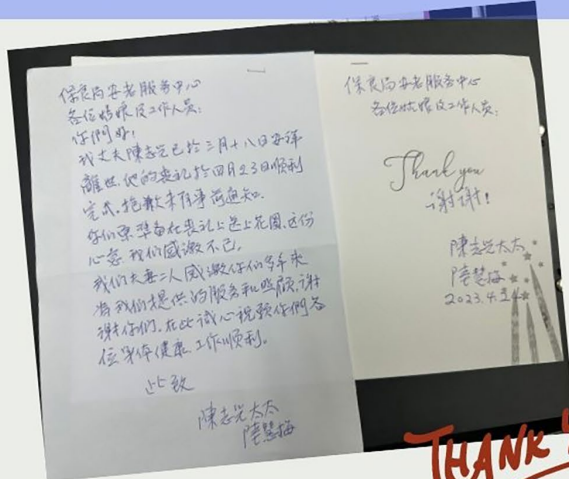 保良局安老服務中心
各位姑娘及工作人員:
你們好!
我丈夫陳志光已於三月十八日安详
離世.他的喪礼於四月23日順利
完成.抱歉未有事前通知.
你们原準備在喪礼上送上花圈.这份
心意我们感激不已.
我们夫妻二人感激你们多年来
為我们提供的服務和照顾.谢
谢你们.在此诚心祝願你們各
位身体健康.工作顺利.
此致
陳志光太太
陸慧梅
保良局安老服務中心
各位姑娘及工作人員:
Thank you
谢谢!
陳志光太太
陸慧梅
2023.4.24
THANK